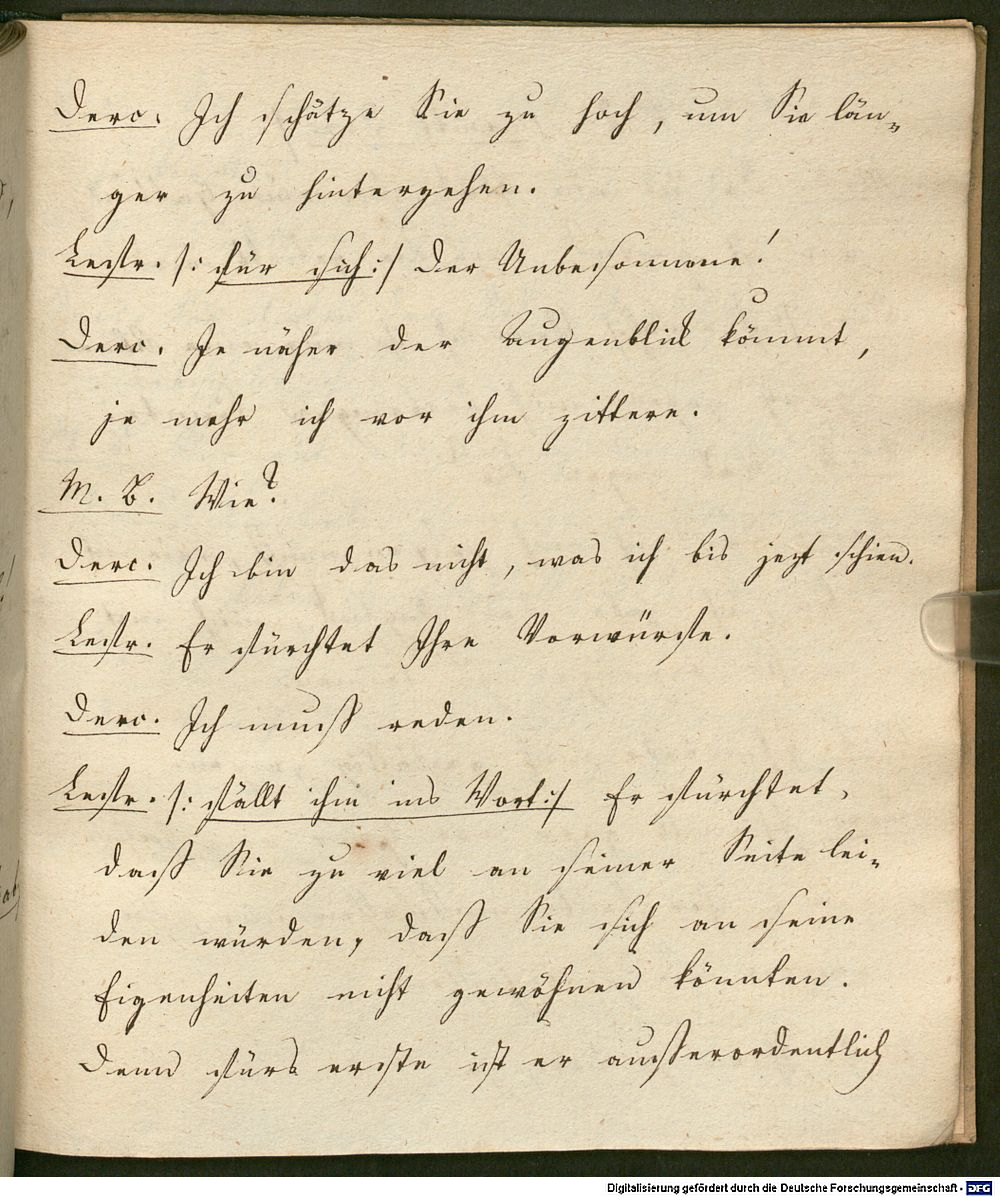 Derc. Ich schätze Sie zu hoch, um Sie län=
ger zu hintergehen.
Lestr. /: für sich :/ Der Unbesonnene!
Derc. Je näher der Augenblick kömmt,
je mehr ich vor ihm zittere.
M. B. Wie?
Derc. Ich bin das nicht, was ich bis jezt schien.
Lestr. Er fürchtet Ihre Vorwürfe.
Derc. Ich muß reden.
Lestr. /: fällt ihm ins Wort :/ Er fürchtet,
daß Sie zu viel an seiner Seite lei=
den würden, daß Sie sich an seine
Eigenheiten nicht gewöhnen könnten.
Denn fürs erste ist er außerordentlich
Digitalisierung gefördert durch die Deutsche Forschungsgemeinschaft - DFG